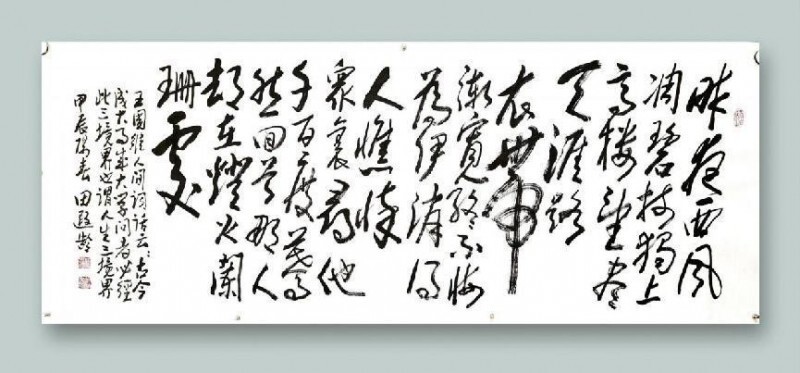 昨夜西风
凋碧树独上
高楼望尽
天涯路
衣带
渐宽终不悔
为伊消得
人憔悴
众里寻他
千百度蓦
然回首那人
却在灯火阑
珊处
王国维人间词话云：古今
成大事业大学问者必经
此三境界也谓人生三境界
甲辰阳春 田遐龄